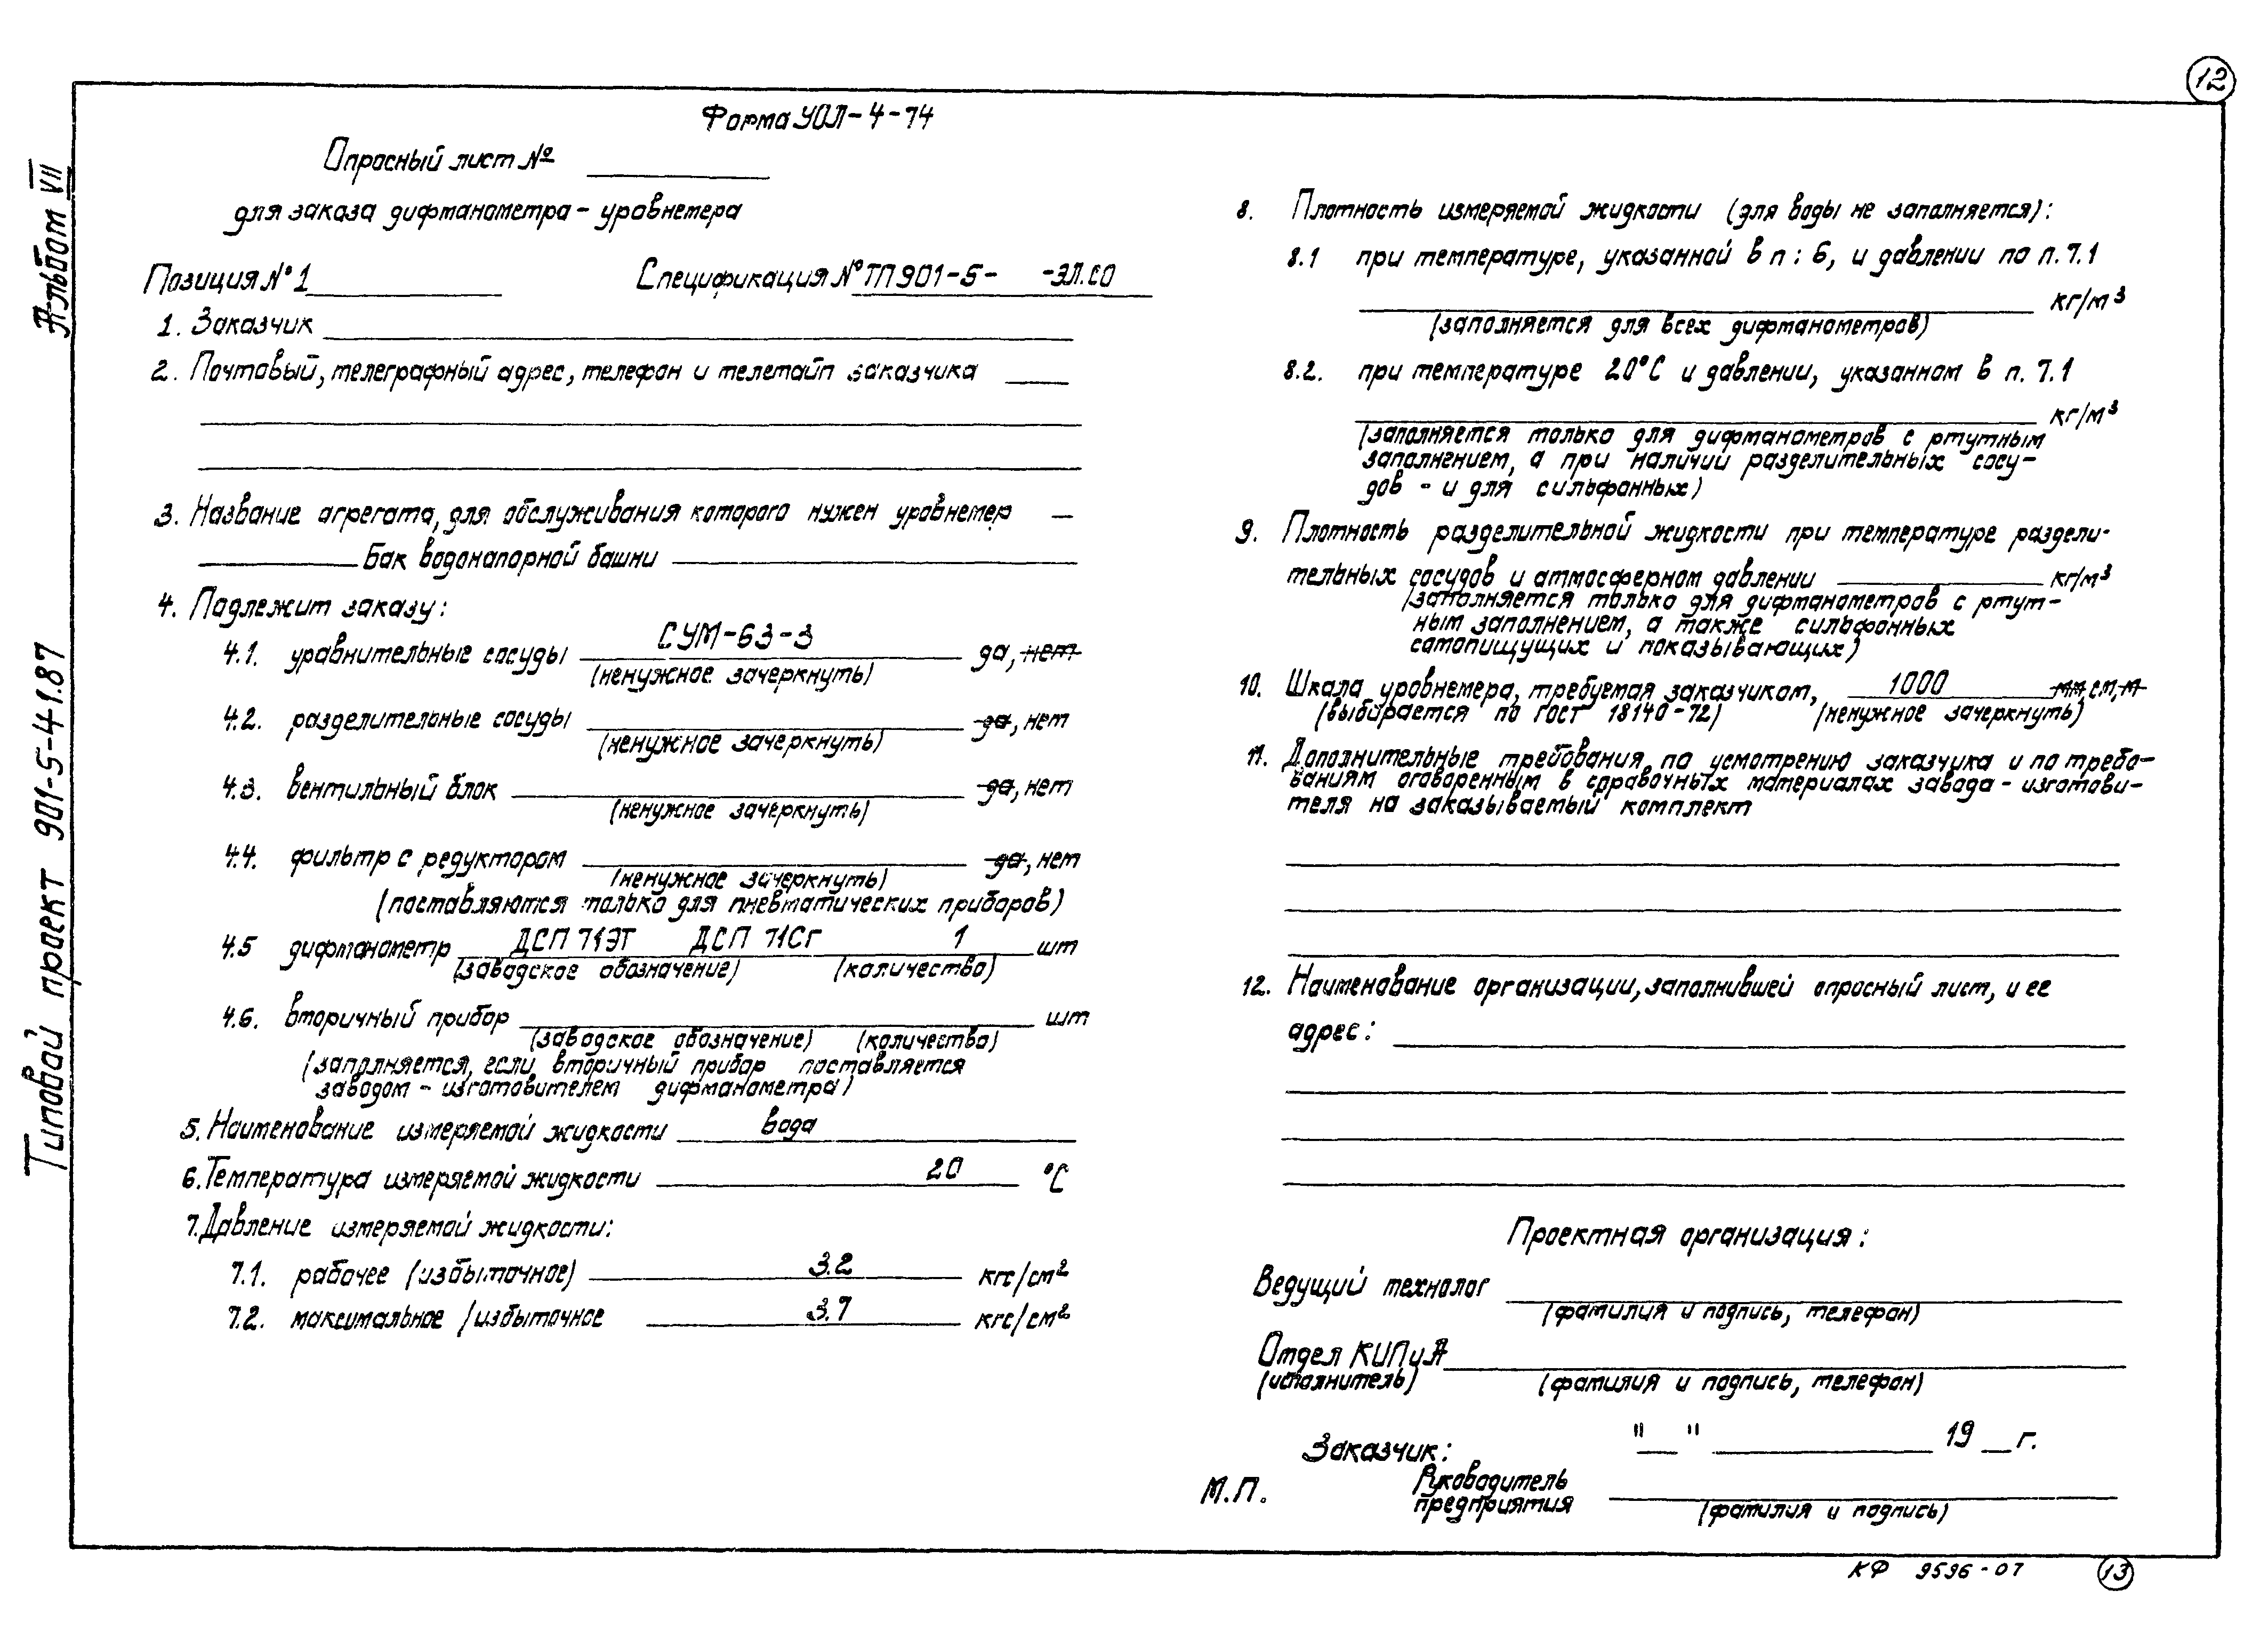 12
Альбом VII
Типовой проект 901-5-41.87
Форма УОЛ-4-74
Опросный лист №
для заказа дифманометра-уровнемера
Позиция №1 Спецификация № ТП901-5- -ЭЛ.СО
1. Заказчик
2. Почтовый, телеграфный адрес, телефон и телетайп заказчика
3. Название агрегата, для обслуживания которого нужен уровнемер
Бак водонапорной башни
4. Подлежит заказу:
4.1. уравнительные сосуды СУМ-63-3 да, нет
(ненужное зачеркнуть)
4.2. разделительные сосуды да, нет
(ненужное зачеркнуть)
4.3. вентильный блок да, нет
(ненужное зачеркнуть)
4.4. фильтр с редуктором да, нет
(ненужное зачеркнуть)
(поставляются только для пневматических приборов)
4.5 дифманометр ДСП 71ЭТ ДСП 71Сг 1 шт
(заводское обозначение) (количество)
4.6. вторичный прибор шт
(заводское обозначение) (количество)
(заполняется, если вторичный прибор поставляется
заводом-изготовителем дифманометра)
5. Наименование измеряемой жидкости вода
6. Температура измеряемой жидкости 20 °С
7. Давление измеряемой жидкости:
7.1. рабочее (избыточное) 3.2 кгс/см²
7.2. максимальное (избыточное 3.7 кгс/см²
8. Плотность измеряемой жидкости (для воды не заполняется):
8.1 при температуре, указанной в п: 6, и давлении по п. 7.1
кг/м³
(заполняется для всех дифманометров)
8.2. при температуре 20°С и давлении, указанном в п. 7.1
кг/м³
(заполняется только для дифманометров с ртутным
заполнением, а при наличии разделительных сосу-
дов - и для сильфонных)
9. Плотность разделительной жидкости при температуре раздели-
тельных сосудов и атмосферном давлении кг/м³
(заполняется только для дифманометров с ртут-
ным заполнением, а также сильфонных
самопищущих и показывающих)
10. Шкала уровнемера, требуемая заказчиком, 1000 мм, см, м
(выбирается по ГОСТ 18140-72) (ненужное зачеркнуть)
11. Дополнительные требования по усмотрению заказчика и по требо-
ваниям оговоренным в справочных материалах завода-изготови-
теля на заказываемый комплект
12. Наименование организации, заполнившей опросный лист, и ее
адрес:
Проектная организация:
Ведущий технолог
(фамилия и подпись, телефон)
Отдел КИПиА
(исполнитель) (фамилия и подпись, телефон)
Заказчик: " " 19 г.
М.П. Руководитель
предприятия
(фамилия и подпись)
КФ 9596-07 13